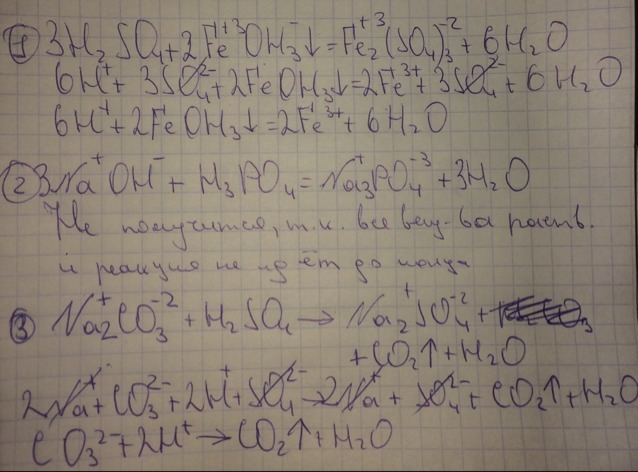 1) 3H₂SO₄ + 2Fe⁺³OH₃⁻↓ = Fe₂⁺³(SO₄)₃⁻² + 6H₂O
6H⁺ + 3SO₄²⁻ + 2FeOH₃↓ = 2Fe³⁺ + 3SO₄²⁻ + 6H₂O
6H⁺ + 2FeOH₃↓ = 2Fe³⁺ + 6H₂O
2) 3Na⁺OH⁻ + H₃PO₄ = Na₃⁺PO₄⁻³ + 3H₂O
Не получится, т.к. все вещ-ва раств.
и реакция не идёт до конца
3) Na₂⁺CO₃⁻² + H₂SO₄ → Na₂⁺SO₄⁻² +
+ CO₂↑ + H₂O
2Na⁺ + CO₃²⁻ + 2H⁺ + SO₄²⁻ → 2Na⁺ + SO₄²⁻ + CO₂↑ + H₂O
CO₃²⁻ + 2H⁺ → CO₂↑ + H₂O